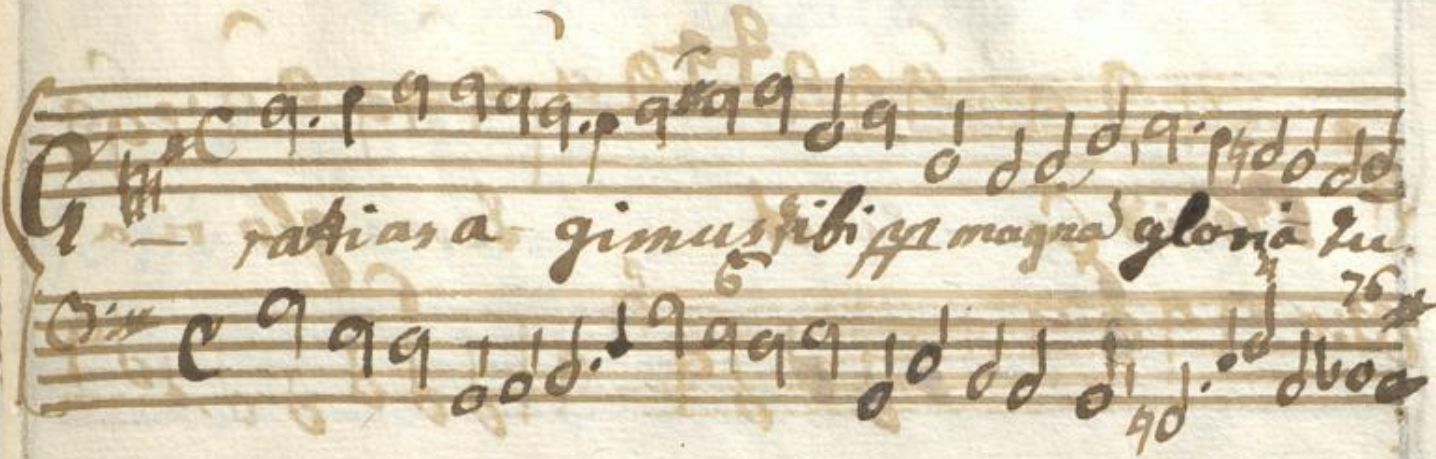 G - ratias a gimus tibi pp magna gloria tu.
6 4 76